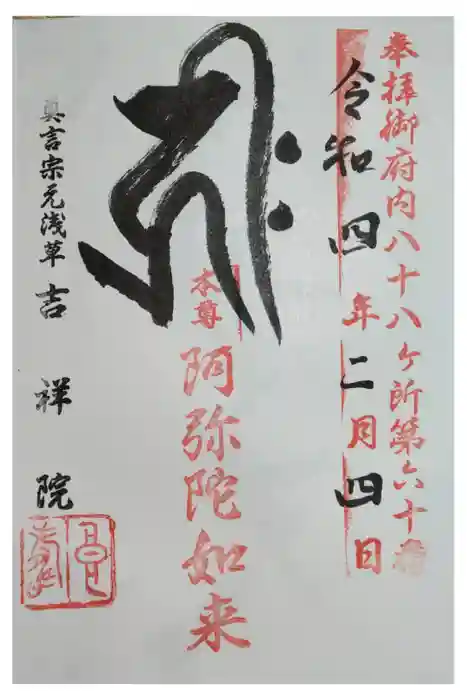 奉拝御府内八十八ヶ所第六十番
令和四年二月四日
本尊
阿弥陀如来
真言宗元浅草吉祥院